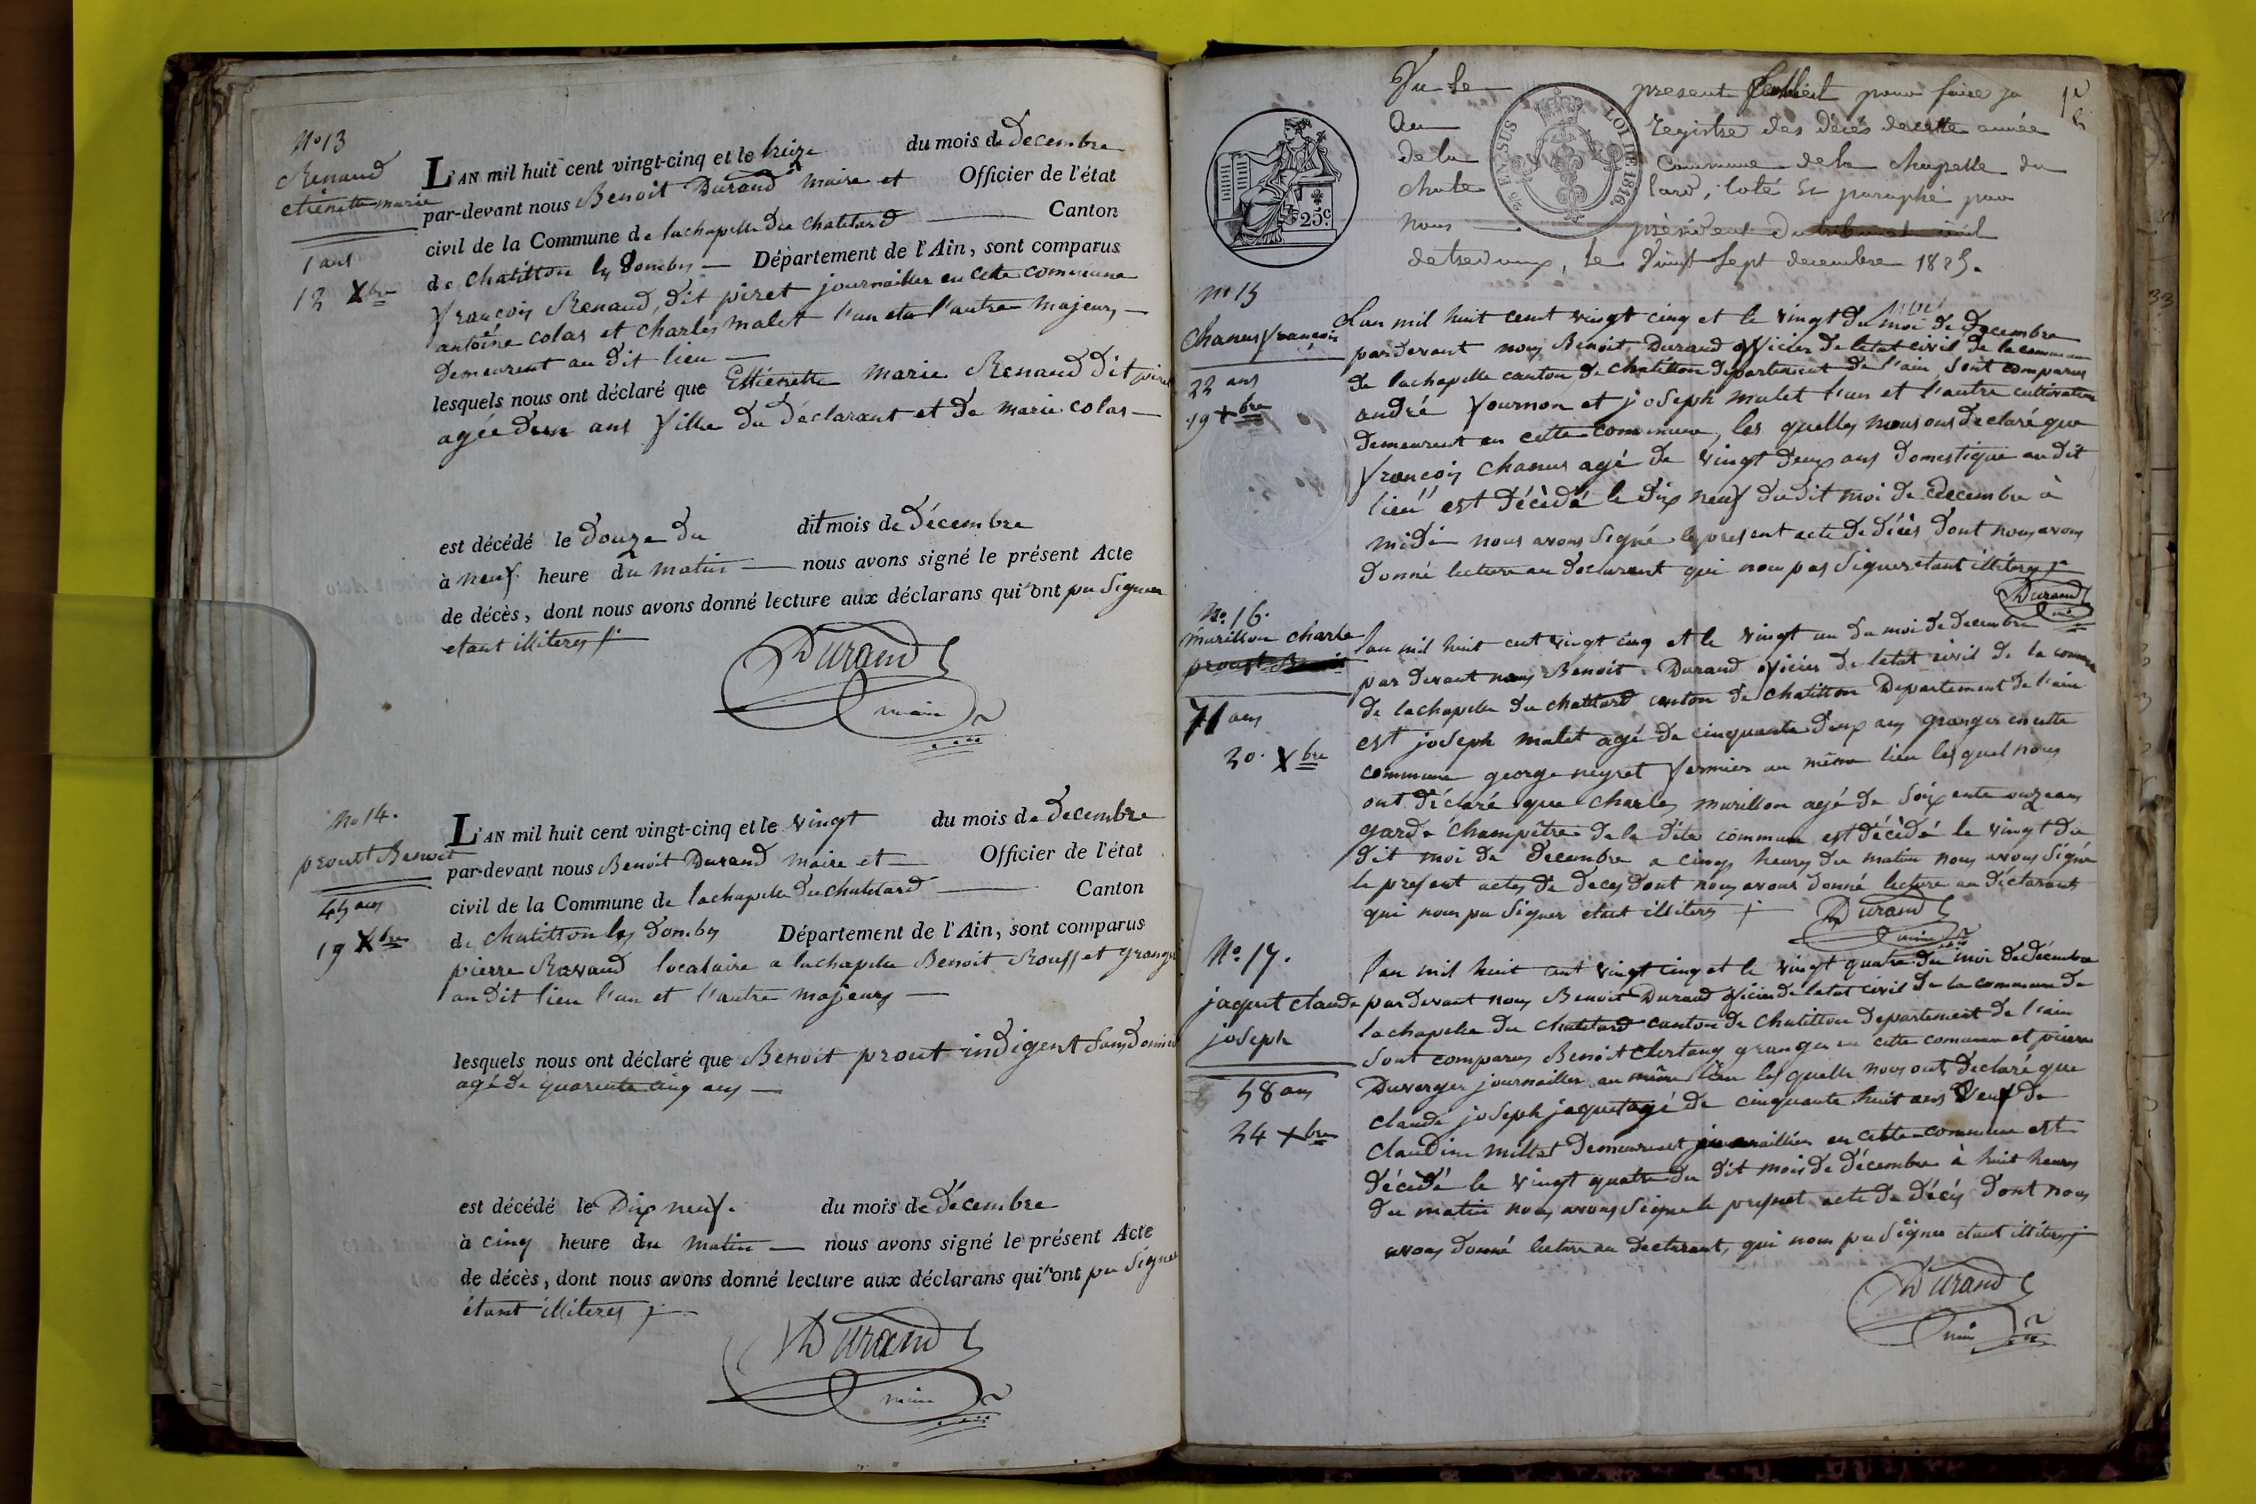 No 13
Renaud
etienette marie
1 ans
12 Xbre
L'AN mil huit cent vingt-cinq et le treize du mois de Decembre
par-devant nous Benoit Durand maire et Officier de l'état
civil de la Commune de lachapelle du chatelard Canton
de Chatillon les Dombes Département de l'Ain, sont comparus
françois Renaud, dit piret journaillier en cette commune
antoine colas et charles malet l'un et l'autre majeurs
demeurent au dit lieu
lesquels nous ont déclaré que Ettienette marie Renaud dit piret
agée d'un ans fille du déclarant et de marie colas
est décédé le douze du dit mois de Décembre
à neuf heure du matin nous avons signé le présent Acte
de décès, dont nous avons donné lecture aux déclarans qui n'ont pu signer
etant illiteres
Durand
maire
No 14.
proust Benoit
45 ans
19 Xbre
L'AN mil huit cent vingt-cinq et le vingt du mois de decembre
par-devant nous Benoit Durand maire et Officier de l'état
civil de la Commune de lachapelle du chatelard Canton
de chatillon les dombes Département de l'Ain, sont comparus
pierre Ravaud locataire a lachapelle Benoit Rousset granger
au dit lieu l'un et l'autre majeurs
lesquels nous ont déclaré que Benoit prout indigent sans domicile
agé de quarente cinq ans
est décédé le Dix neuf. du mois de décembre
à cinq heure du matin nous avons signé le présent Acte
de décès, dont nous avons donné lecture aux déclarans qui n'ont pu signer
étant illiteres
Durand
maire
12
Vu le present feuillet pour faire
au registre des décès de cette année
de la commune de la chapelle du
chate lard, coté et paraphé par
nous président du tribunal civil
de trevoux, le vingt sept decembre 1825.
25 c.
EN SUS
LOI DE 1816.
No 15
Chanus françois
22 ans
19 Xbre
L'an mil huit cent vingt cinq et le vingt du moi de Decembre
pardevant nous Benoit Durand officier de letat civil de la commune
de lachapelle canton de chatillon departement de l'ain, sont comparus
andré fournon et joseph malet l'un et l'autre cultivateur
demeurent en cette commune, les quelles nous ons declaré que
françois chanus agé de vingt deux ans domestique au dit
lieu est décédé le dix neuf du dit moi de decembre à
midi nous avons signé le present acte de décès dont nous avons
donné lecture au declarant qui nom pas signer etant illiteres
Durand
maire
No. 16.
murillon charle
71 ans
20. Xbre
l'an mil huit cent vingt cinq et le vingt un du moi de decembre
par devant nous Benoit Durand officier de letat civil de la commune
de lachapelle du chatelard canton de chatillon Departement de l'ain
est joseph malet agé de cinquante deux ans granger en cette
commune george neyret fermier au même lieu lesquel nous
ont déclaré que charles murillon agé de soixente onze ans
garde champêtre de la dite commune est décédé le vingt du
dit moi de decembre a cinq heures du matin nous avons signé
le present actes de deces dont nous avons donné lecture au déclarant
qui nom pu signer etant illiteres
Durand
maire
No. 17.
jaquet claude
joseph
58 ans
24 Xbre
l'an mil huit cent vingt cinq et le vingt quatre du moi de décembre
pardevant nous Benoit Durand oficier de letat civil de la commune de
lachapelle du chatelard canton de chatillon departement de l'ain
sont comparus Benoit clertang granger en cette commune et pierre
Duverger journaillier au même lieu les quelle nous ont declaré que
claude joseph jaquet agé de cinquante huit ans veuf de
claudine millet demeurant journaillier en cette commune est
décédé le vingt quatre du dit mois de décembre à huit heures
du matin nous avons signé le present acte de décès dont nous
avons donné lecture au declarant, qui nom pu signer etant illiteres
Durand
maire